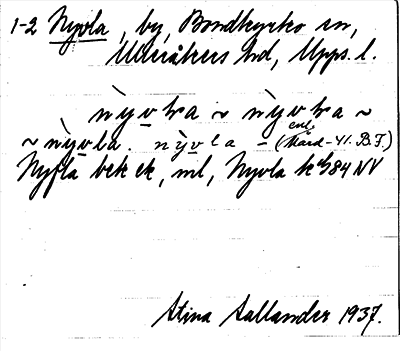 1-2 Nyvla, by, Bondkyrko sn,
Ulleråkers hd, Upps. l.
nỳvla ~ nỳvla ~
~ nỳvla. nỳvla -
enl.
Nyfla bek ek, ml, Nyvla
Stina Sallander 1937.